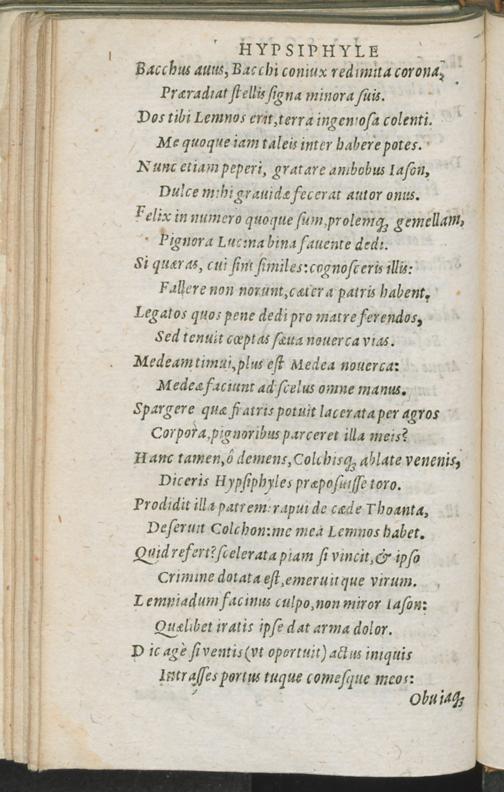 HYPSIPHYLE
Bacchus auus, Bacchi coniux redimita corona,
Præradiat ſtellis ſigna minora ſuis.
Dos tibi Lemnos erit, terra ingenioſa colenti.
Me quoque iam taleis inter habere potes.
Nunc etiam peperi, gratare ambobus Iaſon,
Dulce mihi grauidæ fecerat autor onus.
Felix in numero quoque ſum, prolemq; gemellam,
Pignora Lucina bina fauente dedi.
Si quæras, cui ſint ſimiles: cognoſceris illis:
Fallere non norunt, cætera patris habent.
Legatos quos pene dedi pro matre ferendos,
Sed tenuit cœptas ſæua nouerca vias.
Medeam timui, plus eſt Medea nouerca:
Medeæ faciunt ad ſcelus omne manus.
Spargere quæ fratris potuit lacerata per agros
Corpora, pignoribus parceret illa meis?
Hanc tamen, ô demens, Colchisq; ablate venenis,
Diceris Hypſiphyles præpoſuiſſe toro.
Prodidit illa patrem: rapui de cæde Thoanta,
Deſeruit Colchon: me mea Lemnos habet.
Quid refert? ſcelerata piam ſi vincit, & ipſo
Crimine dotata eſt, emeruitque virum.
Lemniadum facinus culpo, non miror Iaſon:
Quælibet iratis ipſe dat arma dolor.
Dic agè ſi ventis (vt oportuit) actus iniquis
Intraſſes portus tuque comeſque meos:
Obuiaq;